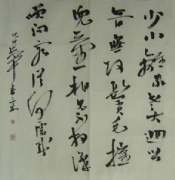 少小離家老大迴鄉
音無改鬢毛摧
兒童相見不相識
笑問客從何處來